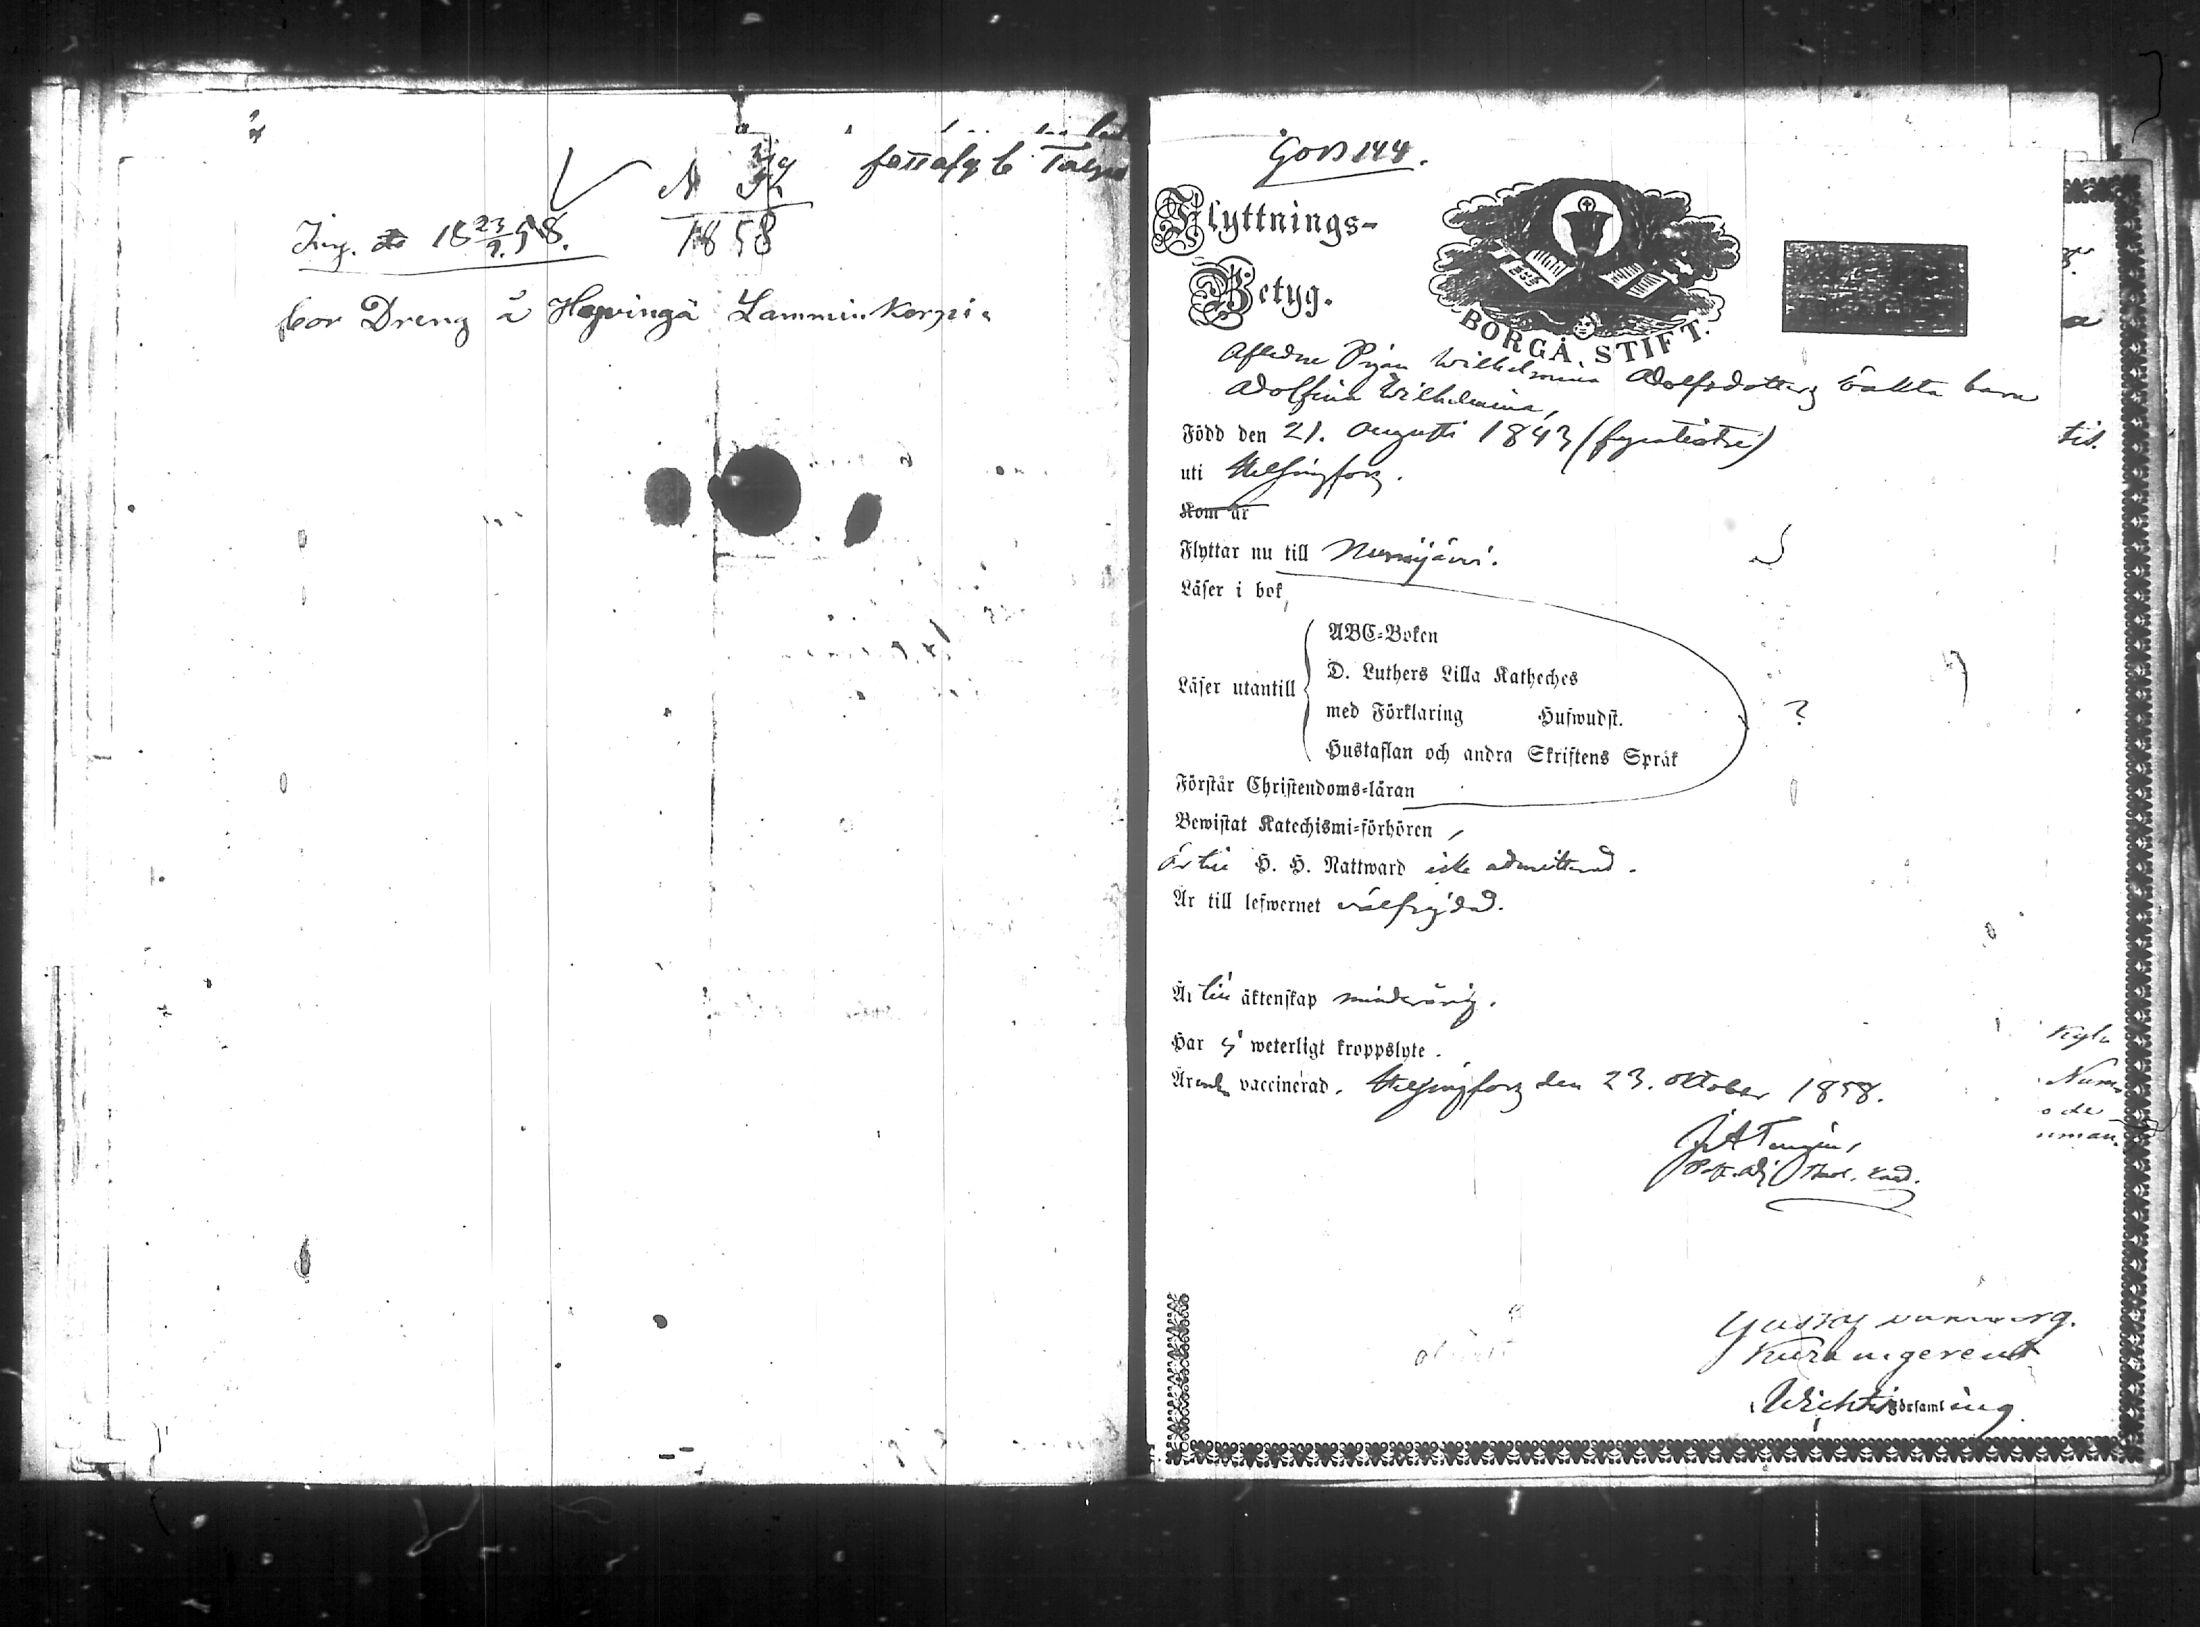 N 32
1858
Ing. 18 23/9 58.
bor Dreng å Hyvingä Lamminkorpi.
144.
Flyttnings-
Betyg.
BORGÅ STIFT.
Aflidne Pigan Wilhelmina Adolfsdotters oäkta barn
Adolfina Wilhelmina,
Född den 21. Augusti 1843 (fyratiotre)
uti Helsingfors.
Kom år
Flyttar nu till Nurmijärvi.
Läser i bok
Läser utantill
ABC-Boken
D. Luthers Lilla Katheches
med Förklaring Hufwudst.
Hustaflan och andra Skriftens Språk
?
Förstår Christendoms-läran
Bewistat Katechismi-förhören
är till H. H. Nattward icke admitterad.
Är till lefwernet välfrejdad.
Är till äktenskap minderårig.
Har ej weterligt kroppslyte.
Är vaccinerad. Helsingfors den 23. Oktober 1858.
Wichtis Församling